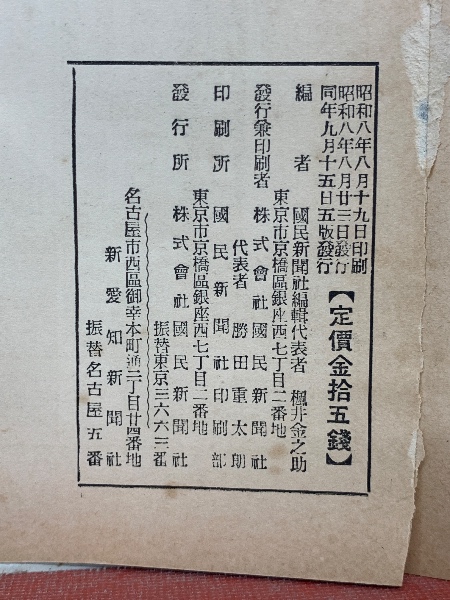 昭和八年八月十九日印刷
昭和八年八月廿三日發行
同年九月十五日五版發行
【定價金拾五錢】
編者 國民新聞社編輯代表者 楓井金之助
東京市京橋區銀座西七丁目二番地
發行兼印刷者 株式會社國民新聞社
代表者 勝田重太朗
東京市京橋區銀座西七丁目二番地
印刷所 國民新聞社印刷部
發行所 株式會社國民新聞社
振替東京三六六三番
名古屋市西區御幸本町通二丁目廿四番地
新愛知新聞社
振替名古屋五番